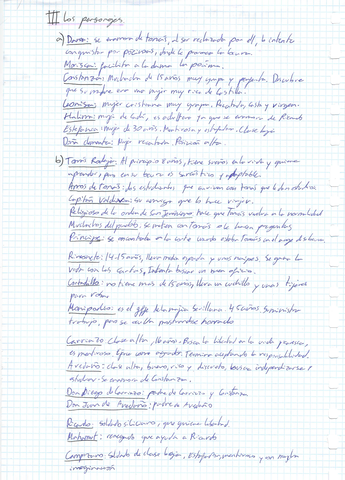 III Los personajes
a) Dama: se enamora de tomás, al ser rechazado por él, lo intenta
conquistar por pócimas, donde le provoca la locura.
Morisca: facilita a la dama la pócima.
Constanza: Muchacha de 15 años muy guapa y . Descubre
que su madre era una mujer muy rica de Castilla.
Leonisa: mujer cristiana muy guapa. Recatada, casta y virgen.
Halima: mujer de Cadí, es adúltera ya que se enamora de Ricardo
Estefanía: mujer de 30 años. Mentirosa y estafadora. Clase baja
Doña Clementa: Mujer recatada. Posición alta.
b) Tomás Rodaja: Al principio 11 años, tiene sueños en la vida y quiere
aprender, pero en su locura es sarcástico y
Amos de Tomás: los estudiantes que conviven con tomás que le dan estudios
Capitán Valdivia: su consejo que le hace viajar.
Religioso de la orden de San Jerónimo: hace que Tomás vuelva a la normalidad
Muchachos del pueblo: se meten con Tomás o le hacen preguntas.
Príncipe: se encontraba en la corte cuando estaba Tomás
Rinconete: 14-15 años, lleva media espada y unos naipes. Se gana la
vida con las cartas, Intenta buscar un buen oficio.
Cortadillo: no tiene mas de 15 años, lleva un cuchillo y unas tijeras
para robar
Monipodio: es el jefe de la mafia Sevillana 45 años Suministra
trabajo, pero se oculta mostrandose honrado
Carriazo: Clase alta, años. Busca la libertad en la vida picaresca,
es mentiroso. Época como aguador. Termina aceptando la responsabilidad.
Avedaño: clase alta, bueno, rico y discreto, busca independizarse y
. Se enamora de Constanza.
Don Diego de Carriazo: padre de Carriazo y Costanza
Don Juan de Avedaño: padre de Avedaño
Ricardo: soldado siciliano, que quiere libertad
Mahamut: renegado que ayuda a Ricardo
Campuzano: soldado de clase baja, Estafador, mentiroso y con mucha
imaginación